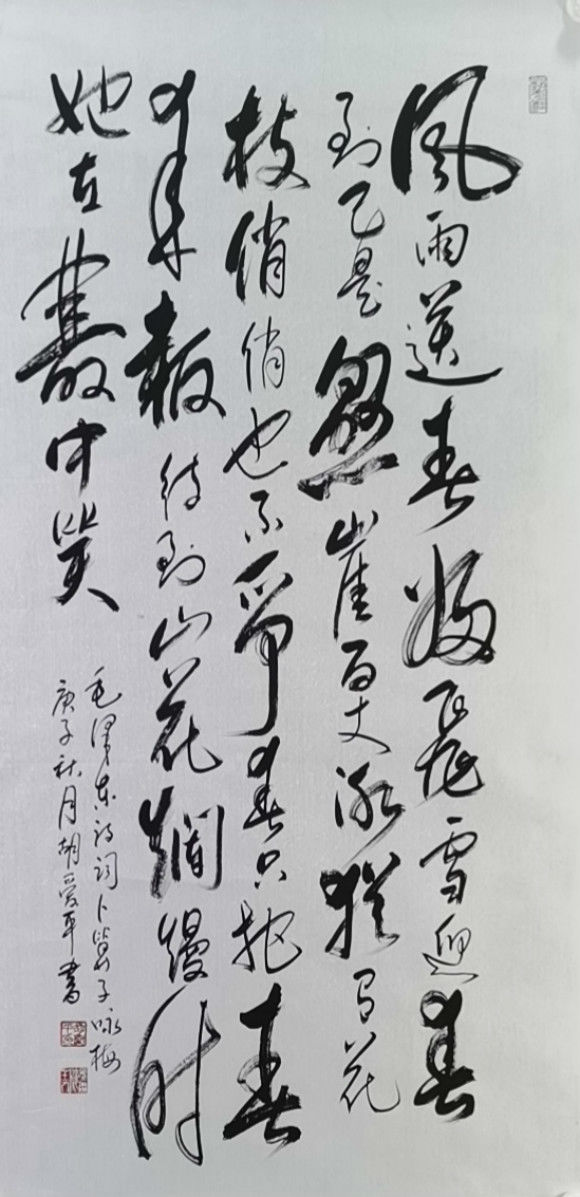 風雨送春歸飛雪迎春
到已是懸崖百丈冰猶有花
枝俏俏也不爭春只把春
來報待到山花爛熳时
她在叢中笑
毛澤东诗词卜算子咏梅
庚子秋月胡爱平書